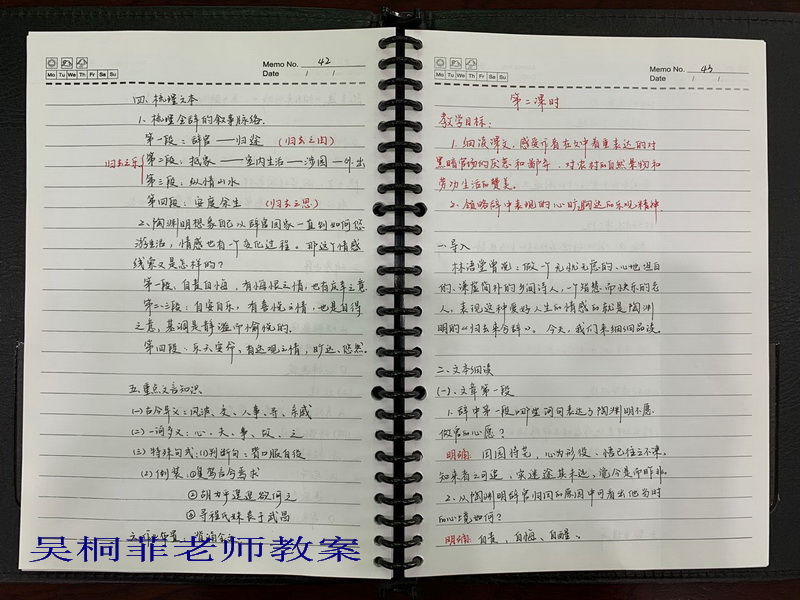 Memo No. 42
Mo Tu We Th Fr Sa Su
Date / /
四、梳理文本
1、梳理全辞的叙事脉络.
第一段：辞官——归途 （归去之由）
归去之乐
第二段：抵家——室内生活——涉园——外出
第三段：纵情山水
第四段：安度余生 （归去之思）
2、陶渊明想象自己从辞官回家一直到如何悠
游生活，情感也有一个变化过程。那这个情感
线索又是怎样的？
第一段，自责自悔，有悔恨之情，也有庆幸之意.
第二、三段：自安自乐，有喜悦之情，也是自得
之意，基调是静谧而愉悦的.
第四段：乐天安命，有达观之情，旷达、悠然.
五.重点文言知识
(一)古今异义：风波、交、人事、寻、亲戚
(二)一词多义：心、夫、事、故、之
(三)特殊句式：(1)判断句：皆口腹自役
(2)倒装：①复驾言兮焉求
②胡为乎遑遑欲何之
③寻程氏妹丧于武昌
吴桐菲老师教案
Memo No. 43
Mo Tu We Th Fr Sa Su
Date / /
第二课时
教学目标：
1.细读课文，感受作者在文中着重表达的对
黑暗官场的厌恶和鄙弃，对农村的自然景物和
劳动生活的赞美。
2.领略辞中表现的心旷胸达和乐观精神.
一.导入
林语堂曾说：做一个无忧无虑的、心地坦白
的、谦虚简朴的乡间诗人，一个智慧而快乐的老
人，表现这种爱好人生和情感的就是陶渊
明的《归去来兮辞》。今天，我们来细细品读.
二、文本细读
(一)、文章第一段
1.辞中第一段哪些词句表达了陶渊明不愿
做官的心愿？
明确：田园将芜、心为形役、悟已往之不谏，
知来者之可追、实迷途其未远，觉今是而昨非.
2.从陶渊明辞官归田的原因中可看出他当时
的心境如何？
明确：自责、自悔、自醒、